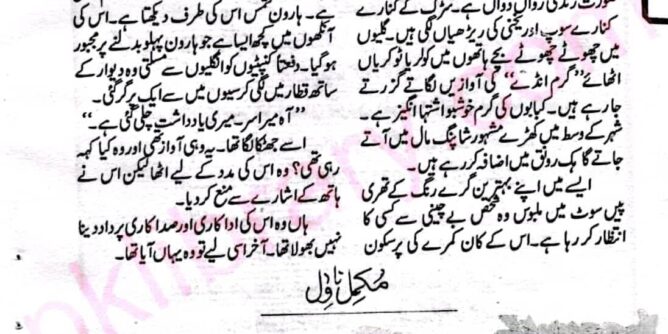 صورت زندگی رواں دواں ہے۔ سڑک کے کنارے
کنارے سوپ اور یخنی کی ریڑھیاں لگی ہیں۔ گلیوں
میں چھوٹے چھوٹے بچے ہاتھوں میں کولر یا ٹوکریاں
اٹھائے ”گرم انڈے“ کی آوازیں لگاتے گزرتے
جا رہے ہیں۔ کبابوں کی گرم خوشبو اشتہا انگیز ہے۔
شہر کے وسط میں کھڑے مشہور شاپنگ مال میں آتے
جاتے گاہک رونق میں اضافہ کر رہے ہیں۔
ایسے میں اپنے بہترین گرے رنگ کے تھری
پیس سوٹ میں ملبوس وہ شخص بے چینی سے کسی کا
انتظار کر رہا ہے۔ اس کے کان کمرے کی پرسکون
ہے۔ ہارون شمس اس کی طرف دیکھتا ہے۔ اس کی
آنکھوں میں کچھ ایسا ہے جو ہارون پہلو بدلنے پر مجبور
ہو گیا۔ دفعتاً کنپٹیوں کو انگلیوں سے مسلتی وہ دیوار کے
ساتھ قطار میں لگی کرسیوں میں سے ایک پر گر گئی۔
”آہ میرا سر۔ میری یادداشت چلی گئی ہے۔“
اسے جھٹکا لگا تھا۔ یہ وہی آواز تھی اور وہ کیا کہہ
رہی تھی؟ وہ اس کی مدد کے لیے اٹھا لیکن اس نے
ہاتھ کے اشارے سے منع کر دیا۔
ہاں وہ اس کی اداکاری اور صداکاری پر داد دینا
نہیں بھولا تھا۔ آخر اسی لیے تو وہ یہاں آیا تھا۔
مکمل ناول